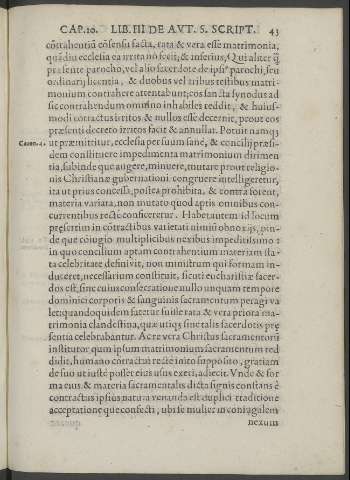 CAP. 10. LIB. III DE AVT. S. SCRIPT. 43
cōtrahentiū cōsensu facta, rata & vera esse matrimonia,
quādiu ecclesia ea irrita nō fecit; & inferius, Qui aliter q̄
præsente parocho, vel alio sacerdote de ipsiꝰ parochi, seu
ordinarij licentia, & duobus vel tribus testibus matri-
monium contrahere attentabunt; eos sancta synodus ad
sic contrahendum omnino inhabiles reddit, & huius-
modi cōtractus irritos & nullos esse decernit, prout eos
præsenti decreto irritos facit & annullat. Potuit namq;
Canon. 4. ut præmittitur, ecclesia per suum sanè, & concilij præsi-
dem constituere impedimenta matrimonium dirimen
tia, subinde que augere, minuere, mutare prout religio-
nis Christianæ gubernationi congruere intelligeretur,
ita ut prius concessa, postea prohibita, & contra forent,
materia variata, non mutato quod aptis omnibus con-
currentibus rectè conficeretur. Habet autem id locum
præsertim in cōtractibus varietati nimiū obnoxijs, pin-
de que cōiugio multiplicibus nexibus impeditissimo:
in quo concilium aptam contrahentium materiam sta-
ta celebritate definivit, non ministrum qui formam in-
duceret, necessarium constituit, sicuti eucharistiæ sacer-
dos est, sine cuius consecratione nullo unquam tempore
dominici corporis & sanguinis sacramentum peragi va
let; quandoquidem fatetur fuisse rata & vera priora ma-
trimonia clandestina, quæ utiq; sine talis sacerdotis præ
sentia celebrabantur. Ac re vera Christus sacramentorū
institutor quum ipsum matrimonium sacramentum red
dadit, humano cōtractui rectè inito supposito, gratiam
de suo ut iustè posset eius usus exeri, adiecit. Vnde & for
ma eius & materia sacramentalis dicta signis constans è
contractus ipsius natura venanda est duplici traditione
acceptatione que confecti, ubi se mulier in coniugalem
nexum